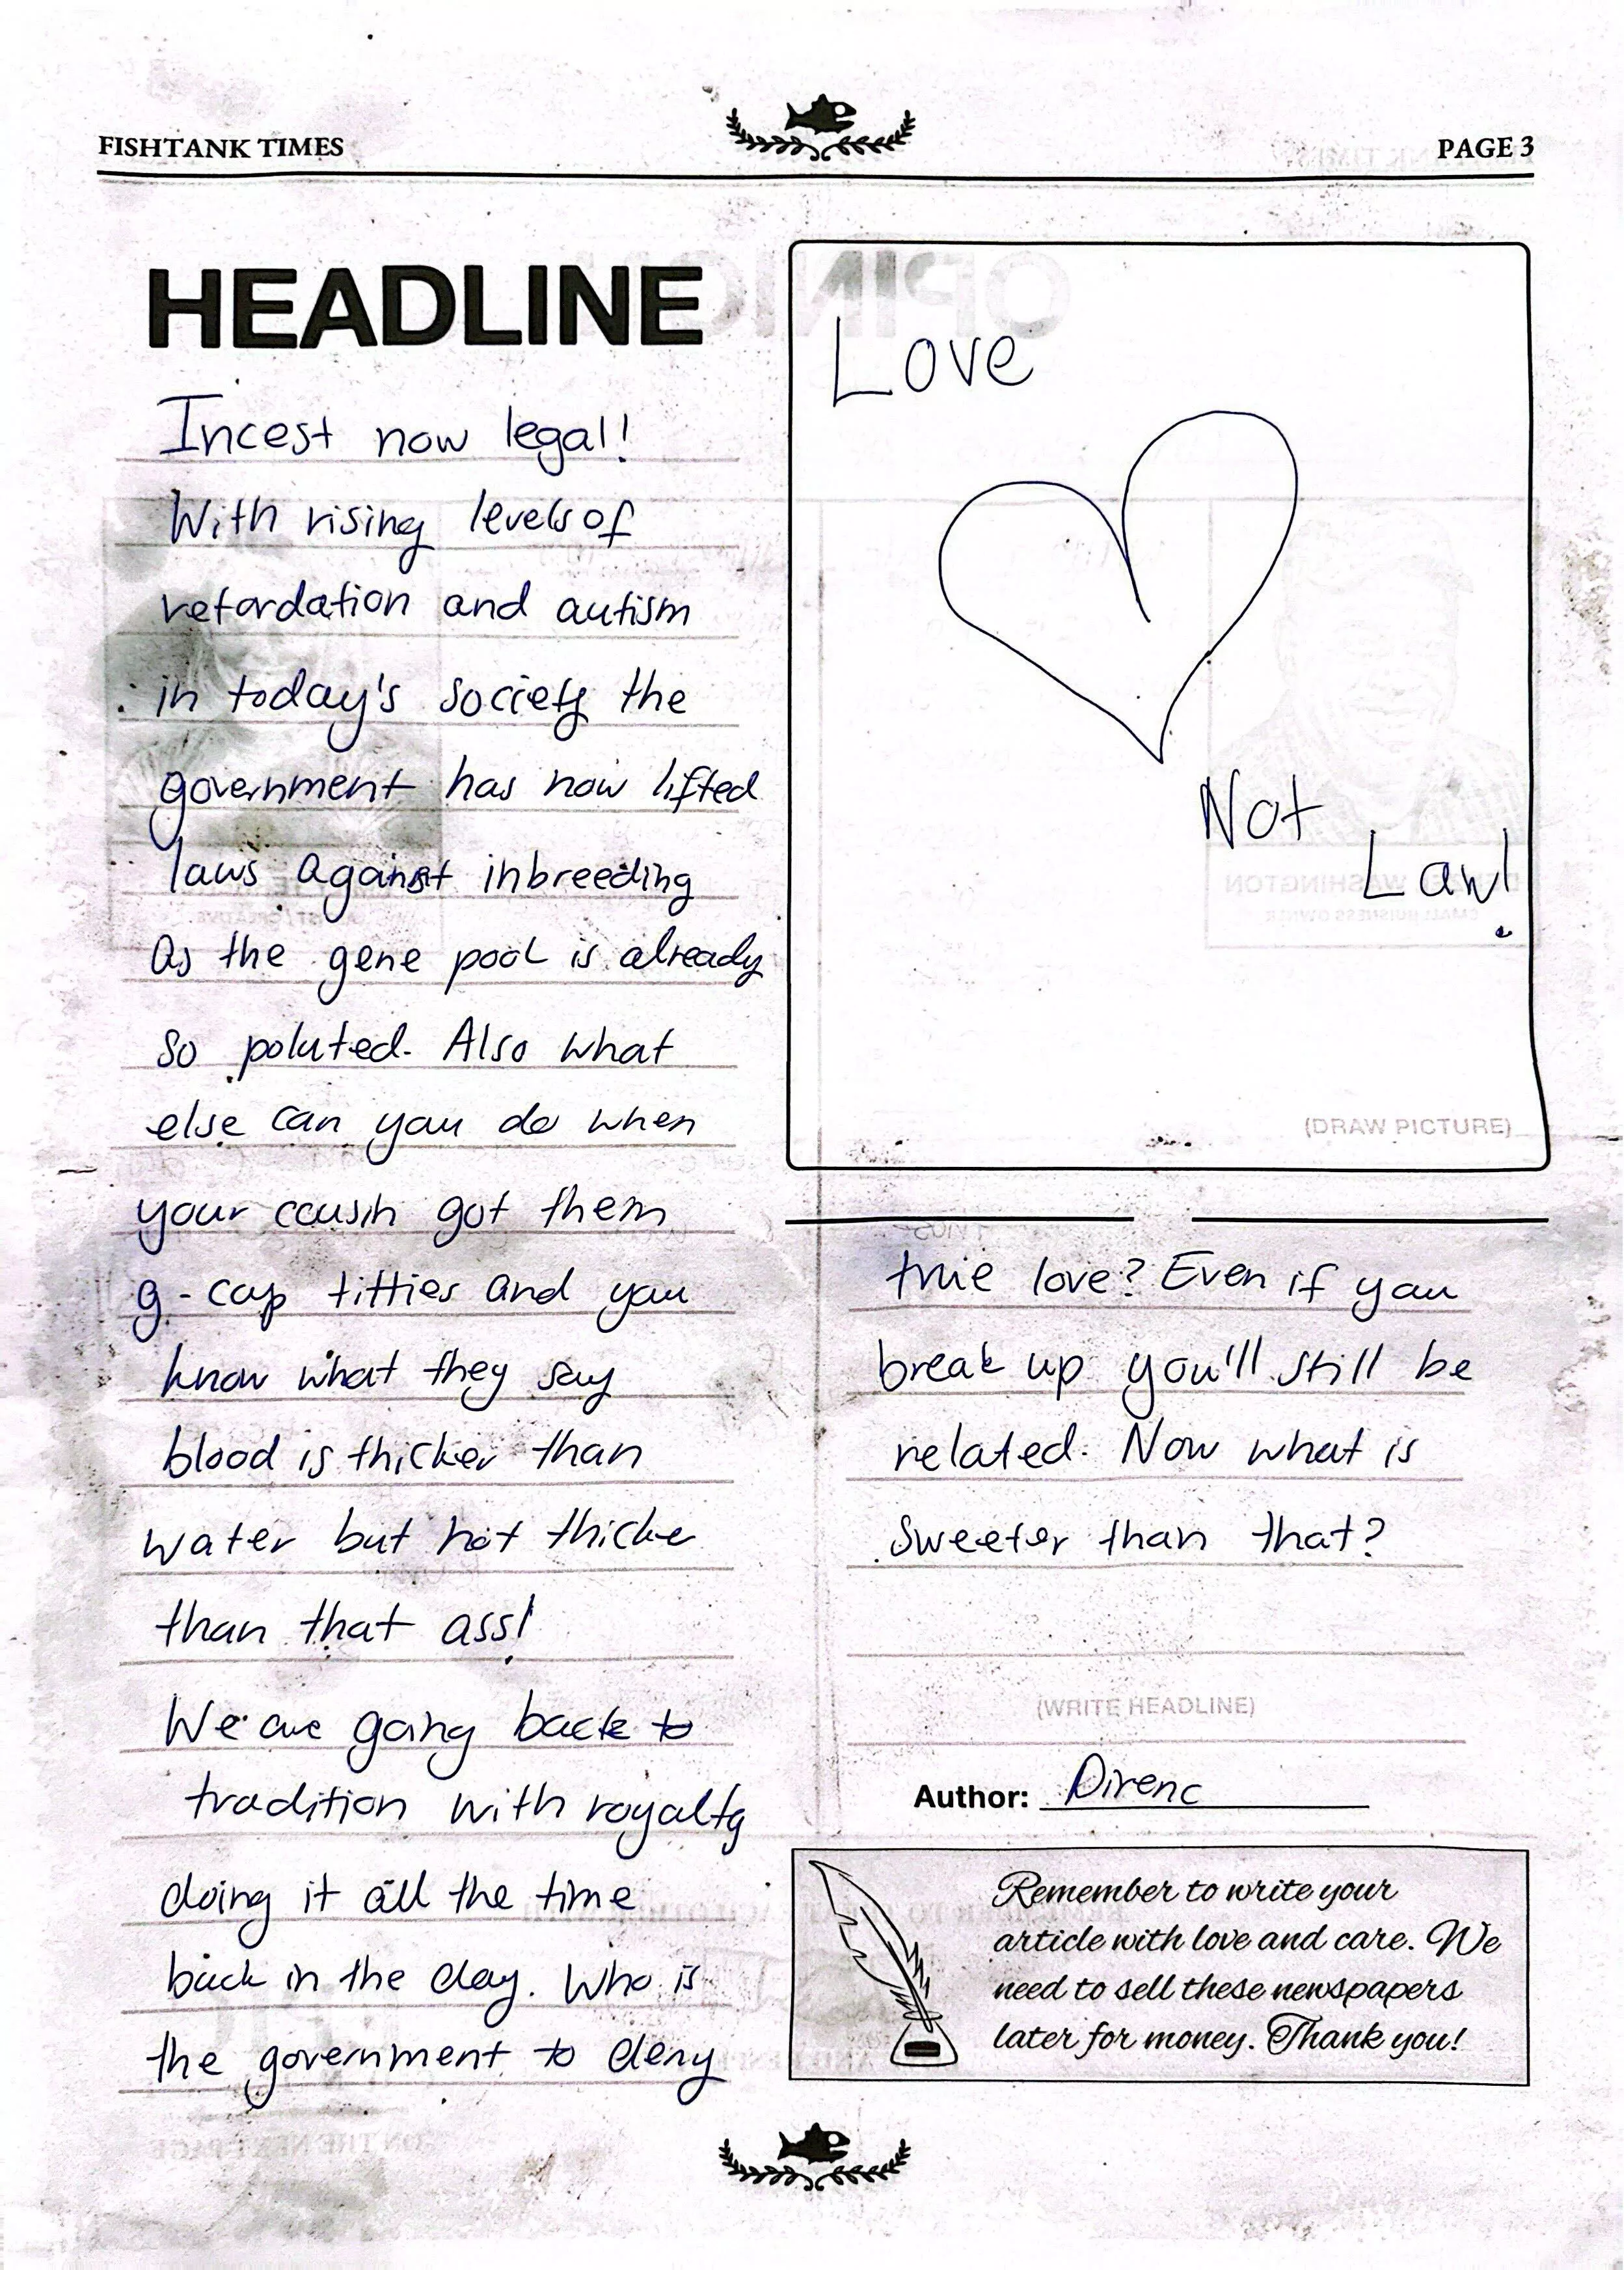 FISHTANK TIMES
PAGE 3
HEADLINE
Incest now legal!
With rising levels of
retardation and autism
in today's society the
government has now lifted
laws against inbreeding
as the gene pool is already
so poluted. Also what
else can you do when
your cousin got them
g-cup titties and you
know what they say
blood is thicker than
water but not thicke
than that ass!
We are going back to
tradition with royalty
doing it all the time
back in the day. Who is
the government to deny
Love
Not
Law!
(DRAW PICTURE)
true love? Even if you
break up you'll still be
related. Now what is
sweeter than that?
(WRITE HEADLINE)
Author: Direnc
Remember to write your
article with love and care. We
need to sell these newspapers
later for money. Thank you!